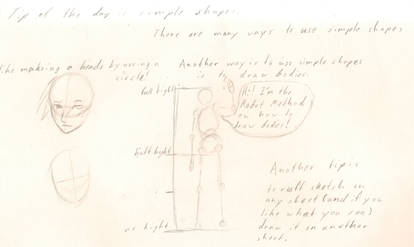 Tip of the day is simple shapes.
There are many ways to use simple shapes
like making a heads by useing a
circle!
Another way is to use simple shapes
is to draw bodies.
full hight
Hi! I'm the
Robot Method
on how to
draw bodies!
half hight
no hight
Another tip is
to sketch on
any sheet (and if you
like what you see)
draw it on another
sheet.